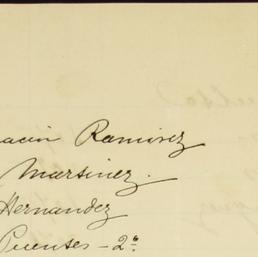 Ramirez
Martinez.
Hernandez
Puentes - 2º